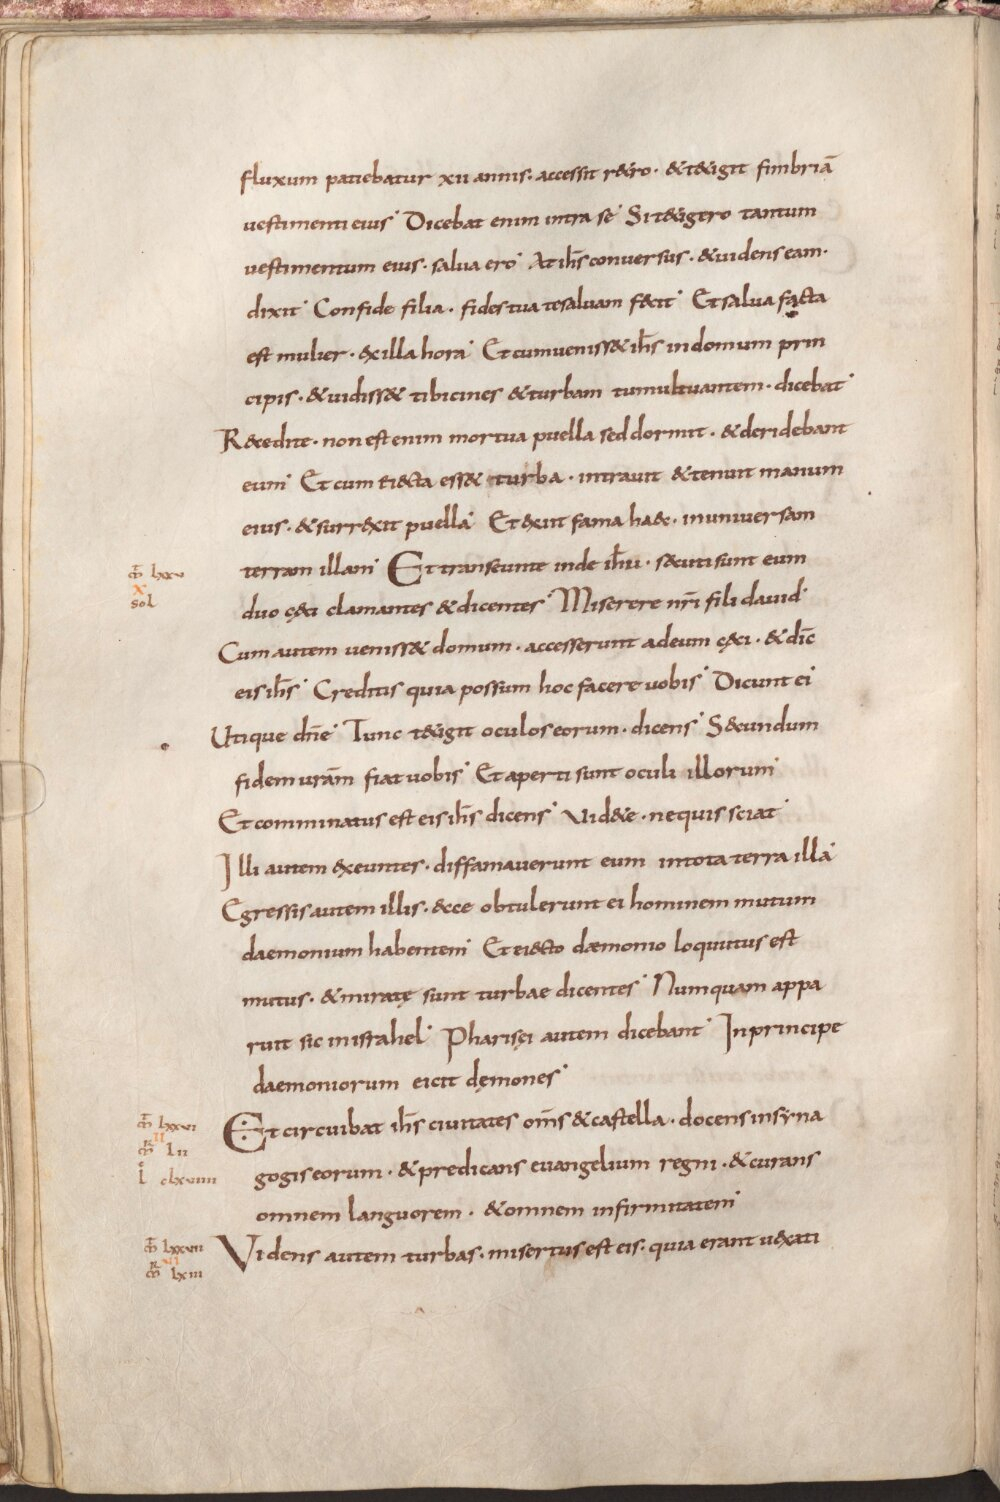 fluxum patiebatur xii annis · accessit r&ro · & t&igit fimbriā
vestimenti eius Dicebat enim intra se Si t&igero tantum
vestimentum eius · salva ero At ihs̄ conversus · & videns eam ·
dixit Confide filia · fides tua te salvam fecit Et salva facta
est mulier · ex illa hora Et cum veniss& ihs̄ in domum prin
cipis · & vidiss& tibicines & turbam tumultuantem · dicebat
Recedite · non est enim mortua puella sed dormit · & deridebant
eum Et cum eiecta ess& turba · intravit & tenuit manum
eius · & surrexit puella Et exiit fama haec · in universam
terram illam Et transeunte inde ihū · secuti sunt eum
m̄ lxxv
x
sol
duo cęci clamantes & dicentes Miserere nr̄i fili david
Cum autem veniss& domum · accesserunt ad eum cęci · & dic̄
eis ihs̄ Creditis quia possum hoc facere vobis Dicunt ei
Utique dn̄e Tunc t&igit oculos eorum · dicens Secundum
fidem vrām fiat vobis Et aperti sunt oculi illorum
Et comminatus est eis ihs̄ dicens Vid&e · ne quis sciat
Illi autem exeuntes · diffamaverunt eum in tota terra illa
Egressis autem illis · ecce obtulerunt ei hominem mutum
daemonium habentem Et eiecto daemonio loquutus est
mutus · & miratę sunt turbae dicentes Numquam appa
ruit sic in israhel Pharisęi autem dicebant In principe
daemoniorum eicit dęmones
m̄ lxxvi
II
mr lii
l clxviiii
Et circuibat ihs̄ civitates om̄s & castella · docens in syna
gogis eorum · & predicans evangelium regni · & curans
omnem languorem · & omnem infirmitatem
m̄ lxxvii
VI
mr lxiii
Videns autem turbas · misertus est eis · quia erant vexati